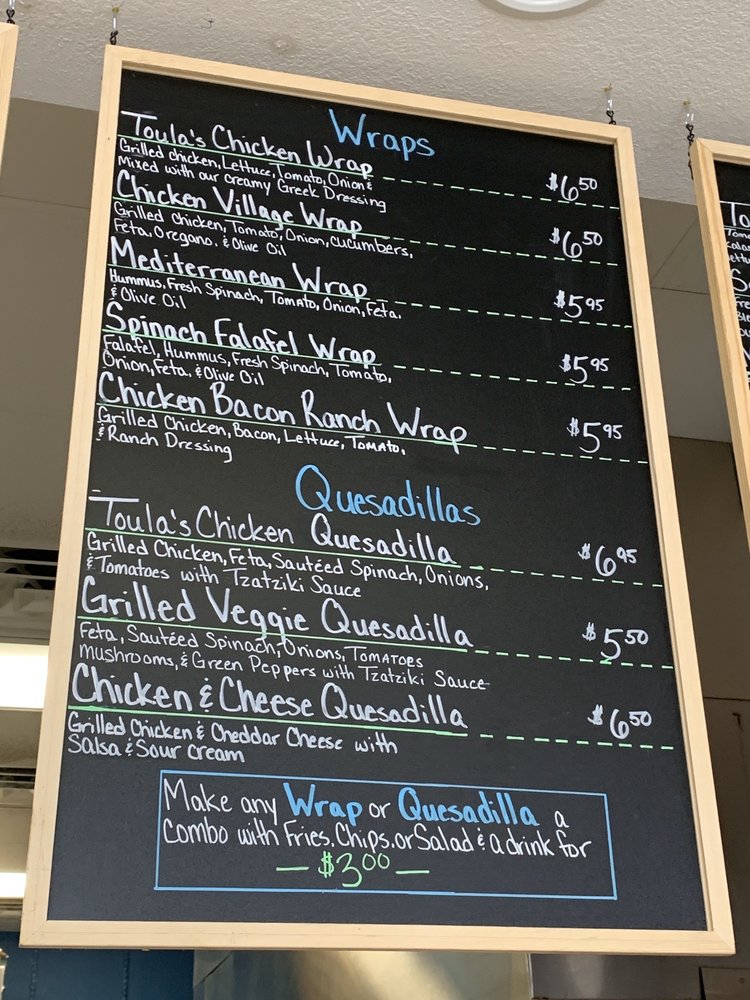 Wraps
Toula's Chicken Wrap $6.50
Grilled chicken, Lettuce, Tomato, Onion &
Mixed with our creamy Greek Dressing
Chicken Village Wrap $6.50
Grilled chicken, Tomato, Onion, cucumbers,
Feta, Oregano, & Olive Oil
Mediterranean Wrap $5.95
Hummus, Fresh Spinach, Tomato, Onion, Feta,
& Olive Oil
Spinach Falafel Wrap $5.95
Falafel, Hummus, Fresh Spinach, Tomato,
Onion, Feta, & Olive Oil
Chicken Bacon Ranch Wrap $5.95
Grilled Chicken, Bacon, Lettuce, Tomato,
& Ranch Dressing
Quesadillas
Toula's Chicken Quesadilla $6.95
Grilled Chicken, Feta, Sautéed Spinach, Onions,
& Tomatoes with Tzatziki Sauce
Grilled Veggie Quesadilla $5.50
Feta, Sautéed Spinach, Onions, Tomatoes
mushrooms, & Green Peppers with Tzatziki Sauce
Chicken & Cheese Quesadilla $6.50
Grilled Chicken & Cheddar Cheese with
Salsa & Sour cream
Make any Wrap or Quesadilla a
combo with Fries, Chips, or Salad & a drink for
— $3.00 —